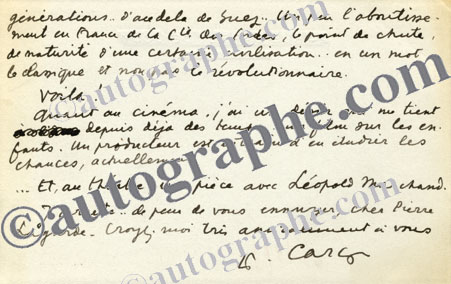 générations.. d'au delà de Suez.. Un peu l'aboutisse-
ment en France de la Cie des Indes, le point de chute,
de maturité d'une certaine civilisation.. en un mot
le classique et non pas le révolutionnaire.
Voilà.
Quant au cinéma, j'ai un qui me tient
depuis déjà des film sur les en-
fants. Un producteur est en étudier les
chances, actuellement
... Et, au théâtre une pièce avec Léopold Marchand.
de peur de vous ennuyer, cher Pierre
Lagarde. Croyez moi très amicalement à vous
F. Carco
©autographe.com
©autographe.com
©autographe.com